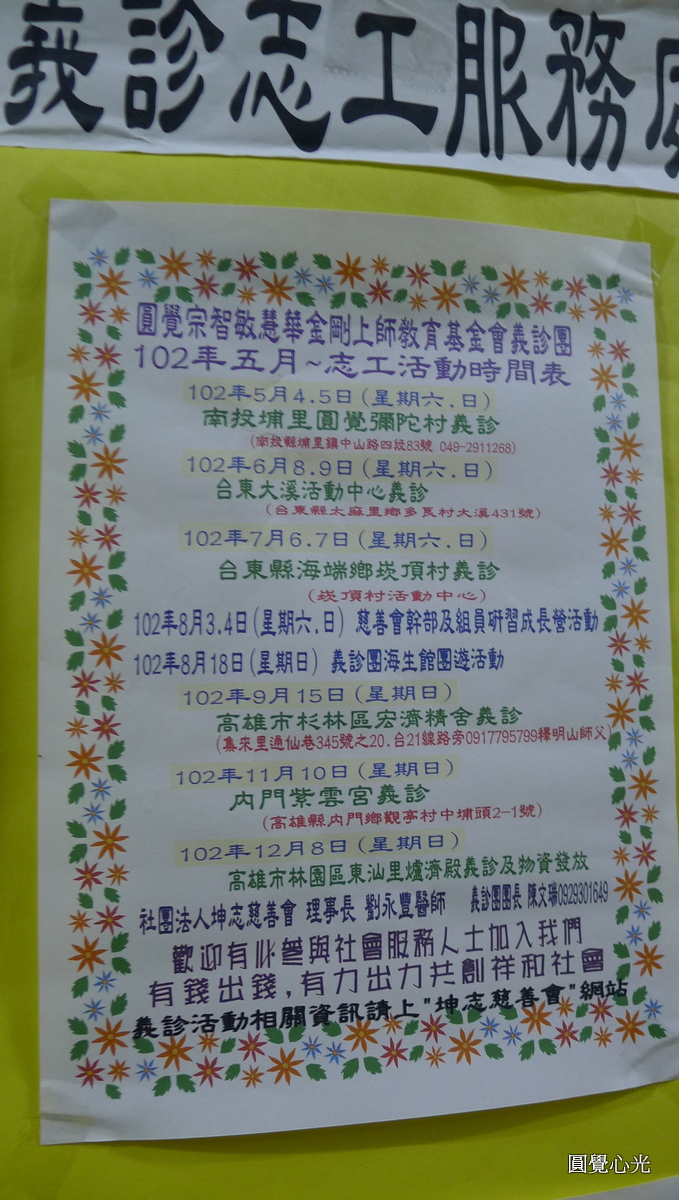 義診志工服務
圓覺宗智敏慧華金剛上師教育基金會義診團
102年五月~志工活動時間表
102年5月4.5日(星期六.日)
南投埔里圓覺彌陀村義診
(南投縣埔里鎮中山路四段83號 049-2911268)
102年6月8.9日(星期六.日)
台東大溪活動中心義診
(台東縣太麻里鄉多良村大溪431號)
102年7月6.7日(星期六.日)
台東縣海端鄉崁頂村義診
(崁頂村活動中心)
102年8月3.4日(星期六.日) 慈善會幹部及組員研習成長營活動
102年8月18日(星期日) 義診團海生館團遊活動
102年9月15日(星期日)
高雄市杉林區宏濟精舍義診
(集來里通仙巷345號之20.台21線路旁0917795799釋明山師父)
102年11月10日(星期日)
內門紫雲宮義診
(高雄縣內門鄉觀亭村中埔頭2-1號)
102年12月8日(星期日)
高雄市林園區東汕里爐濟殿義診及物資發放
社團法人坤志慈善會 理事長 劉永豐醫師 義診團團長 陳文瑞0929301649
歡迎有心參與社會服務人士加入我們
有錢出錢,有力出力共創祥和社會
義診活動相關資訊請上"坤志慈善會"網站
圓覺心光